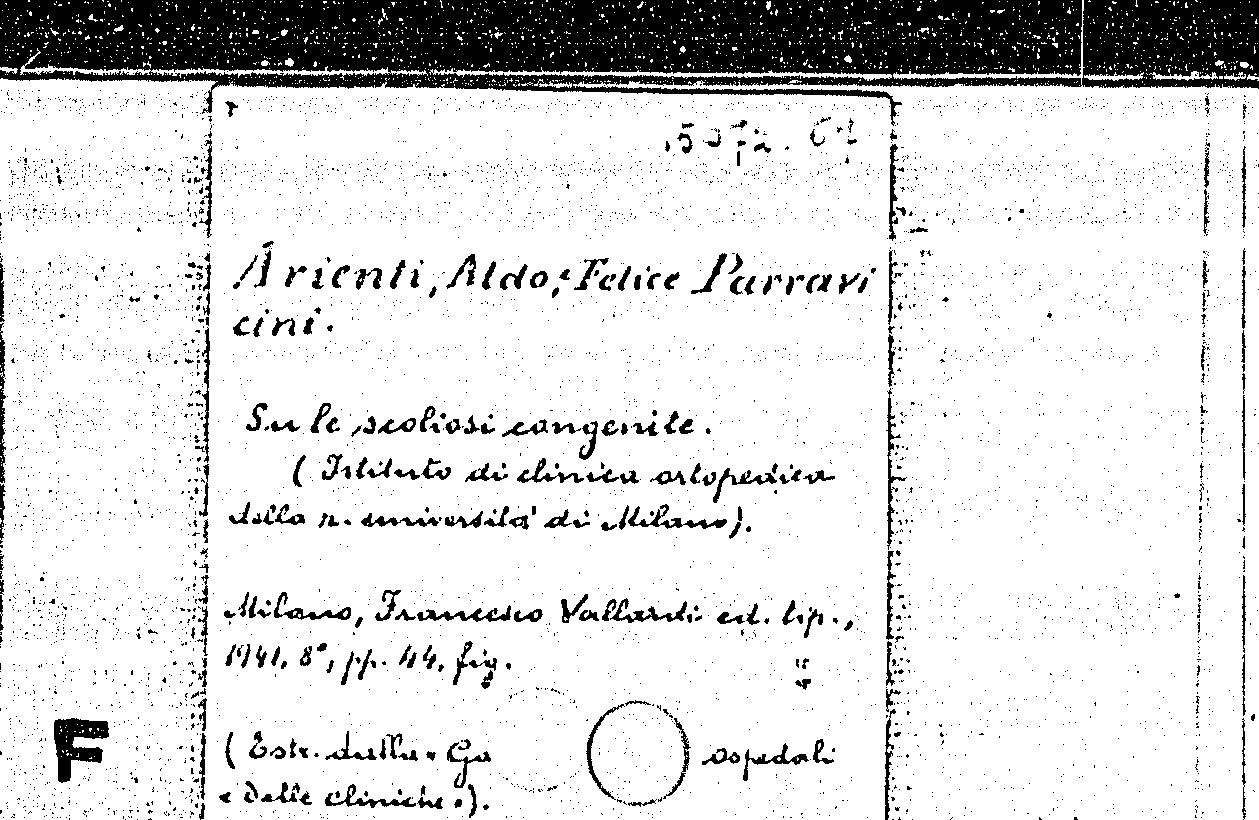 Arienti, Aldo, e Felice Parravi
cini.
Su le scoliosi congenite.
( Istituto di clinica ortopedica
della r. università di Milano).
Milano, Francesco Vallardi ed. tip.,
1941. 8°, pp. 44. fig.
F
( Estr. dalla « Ga ospedali
e delle cliniche »).